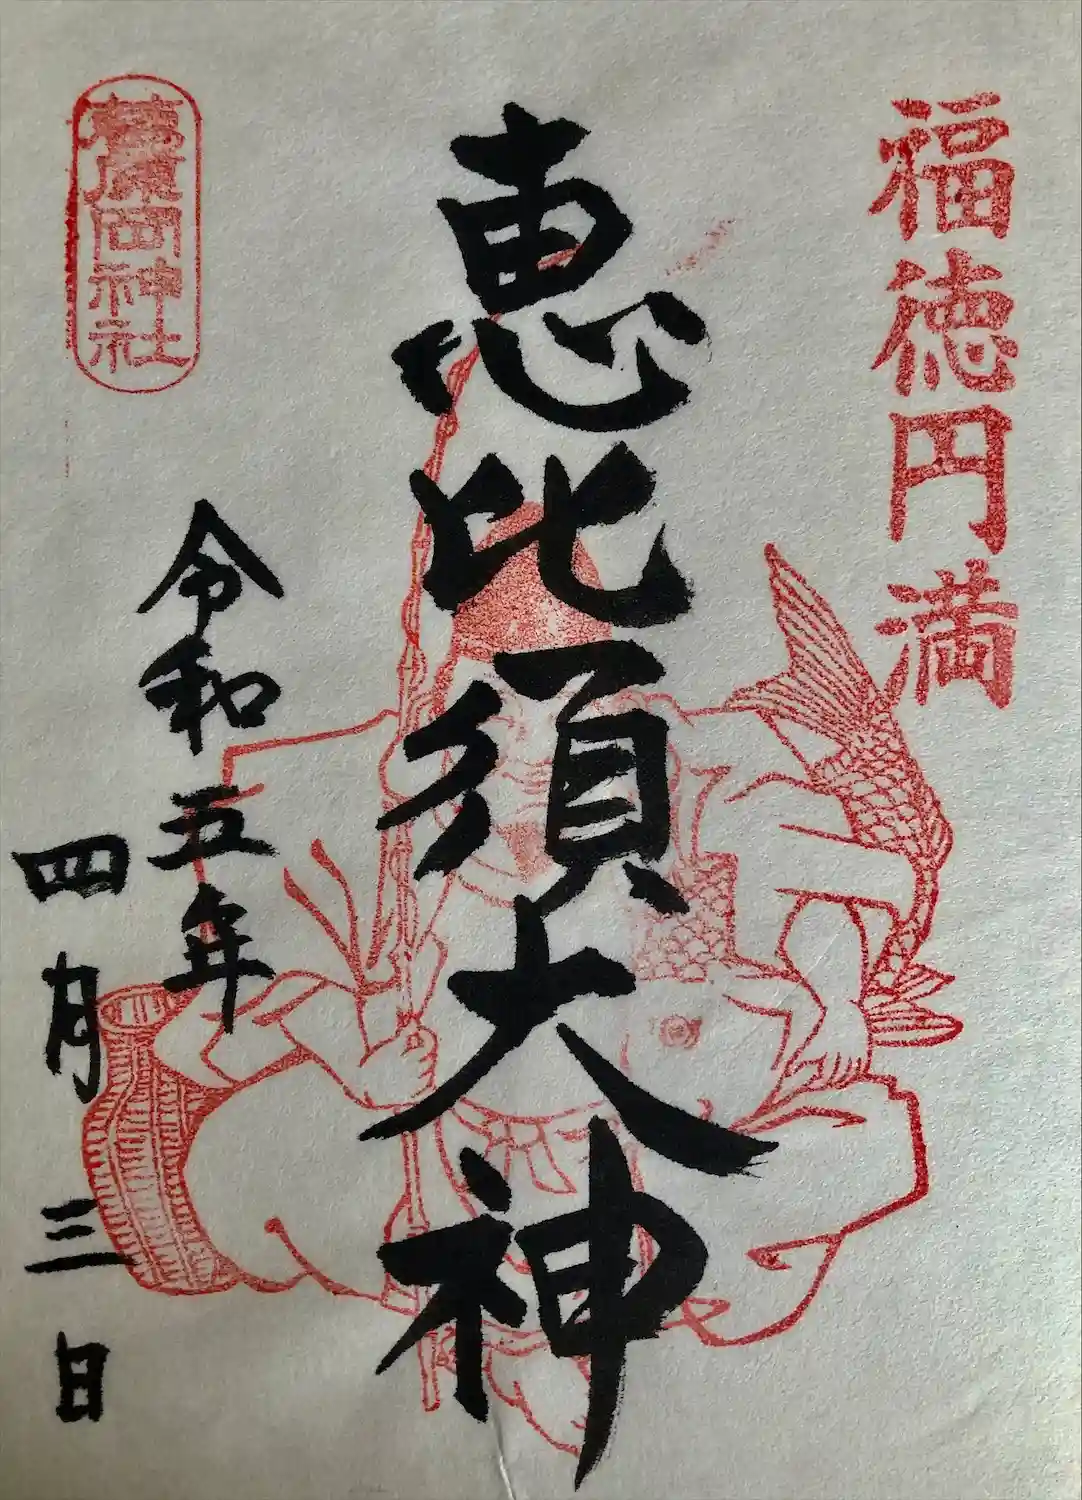 福徳円満
恵比須大神
令和五年
四月三日
葛原岡神社